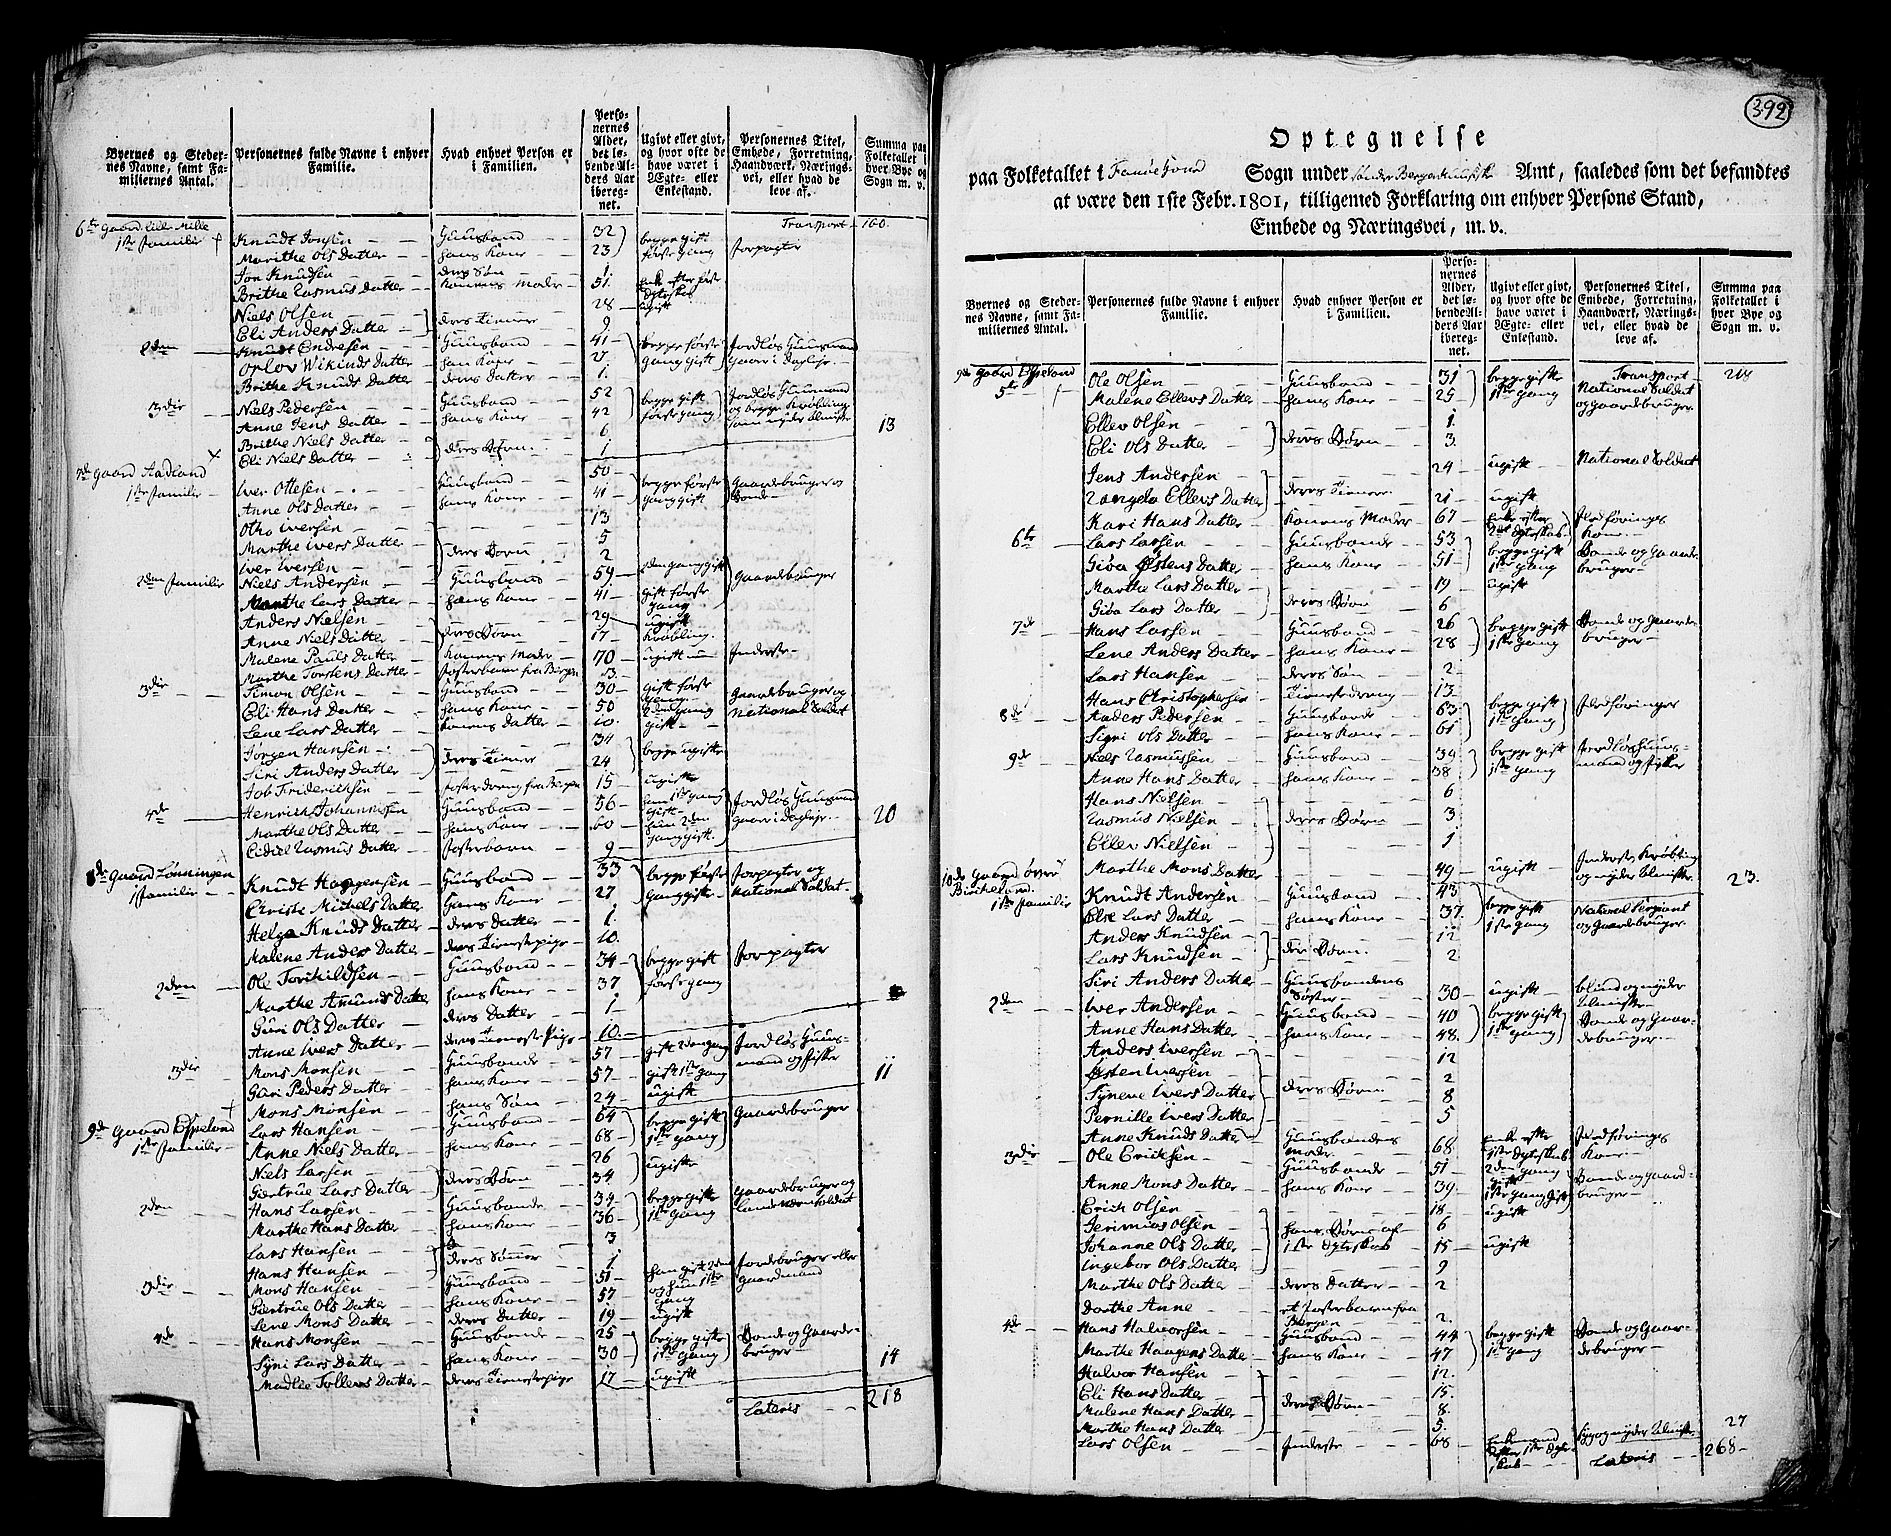 Byernes og Steder-
nes Navne, samt Fa-
miliernes Antal.
Personernes fulde Navne i enhver
Familie.
Hvad enhver Person er
i Familien.
Perso-
nernes
Alder,
det le-
bende Al-
ders Aar
ibereg-
net.
Ugivt eller givt,
og hvor ofte de
have været i
Ægte- eller
Enkestand.
Personernes Titel,
Embede, Forretning,
Haandværk, Nærings-
vei, eller hvad de
leve af.
Summa paa
Folketallet i
hver Bye og
Sogn m. v.
6te Gaard Lille Milde Transport 160.
1ste Familie Knudt Jonsen Huusbond 32 begge gift
Marithe Ols Datter hans Kone 23 første gang Forpagter
Jon Knudsen deres Søn 1
Brithe Rasmus Datter Konens Moder 51. Enke efter første
Niels Olsen 28 ugift
Eli Anders Datter deres Tienere 9
2den Knudt Endresen Huusbond 41 begge første Jordløs Huusmand
Oplov Wikinds Datter hans Kone gang gift
Brithe Knuds Datter deres Datter 1.
3die Niels Pedersen Huusbond 52 begge gift Jordløs Huusmand
Anne Jens Datter hans Kone 42 første gang og begge Krøbling
Brithe Niels Datter 6 som nyder Almisse 13
Eli Niels Datter deres Børn 1
7de Gaard Aadland
1ste Familie Iver Ottesen Huusbond 50 begge første Gaardebruger og
Anne Ols Datter hans Kone 41 gang gift Bonde
Otho Iversen 13
Marthe Ivers Datter deres Børn 5
Iver Iversen 2
2den Familie Niels Andersen Huusbond 59 2den gang gift Gaardebruger
Marthe Lars Datter hans Kone 41 gift første gang
Anders Nielsen 29 ugift
Anne Niels Datter deres Børn 17 Krøbling.
Malene Pauls Datter Konens Moder 70 ugift Inderste
Marthe Torstens Datter Fosterbarn fra Bergen 3
3die Simon Olsen Huusbond 30 gift første gang Gaardebruger og
Eli Hans Datter hans Kone 50 National Soldat
Lene Lars Datter Konens Datter 10.
Jørgen Hansen 34
Siri Anders Datter deres Tienere 24 begge ugifte
Job Friderichsen Fosterdreng fra Bergen 15 ugift
4de Henrich Johannesen Huusbond 56 han 1ste gang gift Jordløs Huusmand
Marthe Ols Datter hans Kone 60 hun 2den gang gift. 20
Rasmus Datter Fosterbarn 9
8de Gaard Lønningen
1 Familie Knudt Haagensen Huusbond 33 begge første Forpagter og
Christi Michels Datter Hans Kone 27 Gang gift National Soldat
Helga Knuds Datter deres Datter 1.
Malene Anders Datter deres Tienestepige 10.
2den Ole Torkildsen Huusbond 34 begge gift Forpagter
Marthe Amunds Datter hans Kone 37 første gang
Guri Ols Datter deres Datter 1
Anne Ivers Datter deres Tieneste Pige 10
3die Mons Monsen Huusbonde 57 gift 2den gang Jordløs Huus-
Guri Peders Datter hans Kone 57 gift 1ste gang mand og Fisker 11
Mons Monsen hans Søn 24 ugift
9de Gaard Espeland
1ste Familie Lars Hansen Huusbond 64 begge gift Gaardebruger
Anne Niels Datter hans Kone 68 1ste gang
Niels Larsen 26 ugifte
Giertrue Lars Datter deres Børn 34
2den Hans Larsen Huusbonde 34 begge gifte Gaardebruger og
Marthe Hans Datter hans Kone 36 1ste Gang Landeværn Soldat
Lars Hansen 3
Hans Hansen deres Sønner 1
3die Mons Hansen Huusbond 51 han gift 2den Jordebruger eller
Giertrue Ols Datter hans Kone 57 og hun 1ste gang Gaardmand
Lene Mons Datter deres Datter 19 ugift
4de Hans Monsen Huusbonde 25 begge gifte Bonde og Gaarde-
Syni Lars Datter hans Kone 30 1ste Gang bruger 14
Madlie Tollevs Datter deres Tienestepige 17 ugift
Lateris 218
392
Optegnelse
paa Folketallet i Fanøefiord Sogn under Sønder Bergenhuusiske Amt, saaledes som det befandtes
at være den 1ste Febr. 1801, tilligemed Forklaring om enhver Persons Stand,
Embede og Næringsvei, m. v.
Byernes og Steder-
nes Navne, samt Fa-
miliernes Antal.
Personernes fulde Navne i enhver
Familie.
Hvad enhver Person er
i Familien.
Perso-
nernes
Alder,
det le-
bende Al-
ders Aar
ibereg-
net.
Ugivt eller givt,
og hvor ofte de
have været i
Ægte- eller
Enkestand.
Personernes Titel,
Embede, Forretning,
Haandværk, Nærings-
vei, eller hvad de
leve af.
Summa paa
Folketallet i
hver Bye og
Sogn m. v.
9de Gaard Espeland Transport 218
5te Ole Olsen Huusbond 31 begge gifte National Soldat
Malene Ellevs Datter hans Kone 25 1ste gang og gaardebruger
Ellev Olsen 1.
Eli Ols Datter deres Børn 3.
Jens Andersen 24 ugift National Soldat
Ellevs Datter deres Tienere 21 ugift
Kari Hans Datter Konens Moder 67 Enke efter 2det Ægteskab Føderaads Kone
6te Lars Larsen Huusbonde 53 begge gift Bonde og Gaarde-
Giøa Østens Datter hans Kone 51 1ste gang bruger
Marthe Lars Datter 19 ugift
Giøa Lars Datter deres Børn 6
7de Hans Larsen Huusbond 26 begge gift Bonde og Gaarde-
Lene Anders Datter hans Kone 28 1ste gang bruger
Lars Hansen deres Søn 2
Hans Christophersen Tienestedreng 13
8de Anders Pedersen Huusbonde 63 begge gift
Sigri Ols Datter hans Kone 61 1ste Gang
9de Niels Rasmussen Huusbond 39 begge gift Jordløs Huus-
Anne Hans Datter hans Kone 38 1ste gang mand og Fisker
Hans Nielsen 6
Rasmus Nielsen deres Børn 3
Ellev Nielsen 1
Marthe Mons Datter 49 ugift Inderste, Krøbling og nyder Almisse. 23.
10de Gaard øvre
Birkeland.
1ste Familie Knudt Andersen Huusbond 43 begge gift National Sergiant
Else Lars Datter hans Kone 37. 1ste gang og Gaardebruger
Anders Knudsen 12
Lars Knudsen deres Børn. 2
Siri Anders Datter Huusbondens Søster 30 ugift blind og nyder Almisse
2den Iver Andersen Huusbond 40 begge gift Bonde og Gaar-
Anne Hans Datter hans Kone 48. 1ste gang debruger.
Anders Iversen 12
Østen Iversen 2
Synneve Ivers Datter deres Børn 8
Pernille Ivers Datter 5
Anne Knuds Datter Huusbondens Moder 68 Enke efter 1ste Ægteskab Kone
3die Ole Ericksen Huusbonde 51 2den gang gift Bonde og Gaard-
Anne Mons Datter hans Kone 39 1ste gang gift bruger
Erick Olsen 18 ugift
Jerimias Olsen hans Børn af 6
Johanne Ols Datter 1ste Ægteskab 15 ugift
Ingebor Ols Datter 9
Marthe Ols Datter deres Datter 2
Dorthe Anne et Fosterbarn fra Bergen 2.
4de Hans Halvorsen Huusbond 44 begge gift Bonde og Gaar-
Marthe Haagens Datter hans Kone 47 1ste gang debruger
Halvor Hansen 12.
Eli Hans Datter 15.
Malene Hans Datter deres Børn 8.
Marthe Hans Datter 5. 27
Lars Olsen Inderste 68 Enkemand efter 1ste Ægteskab og nyder Almisse
Lateris 268